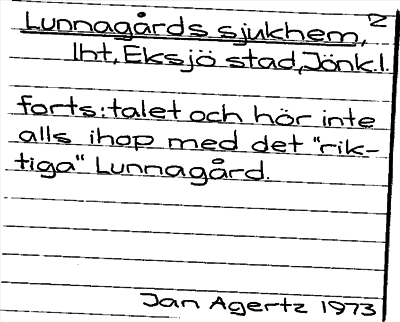 2
Lunnagårds sjukhem,
lht, Eksjö stad, Jönk.l.
forts: talet och hör inte
alls ihop med det "rik-
tiga" Lunnagård.
Jan Agertz 1973